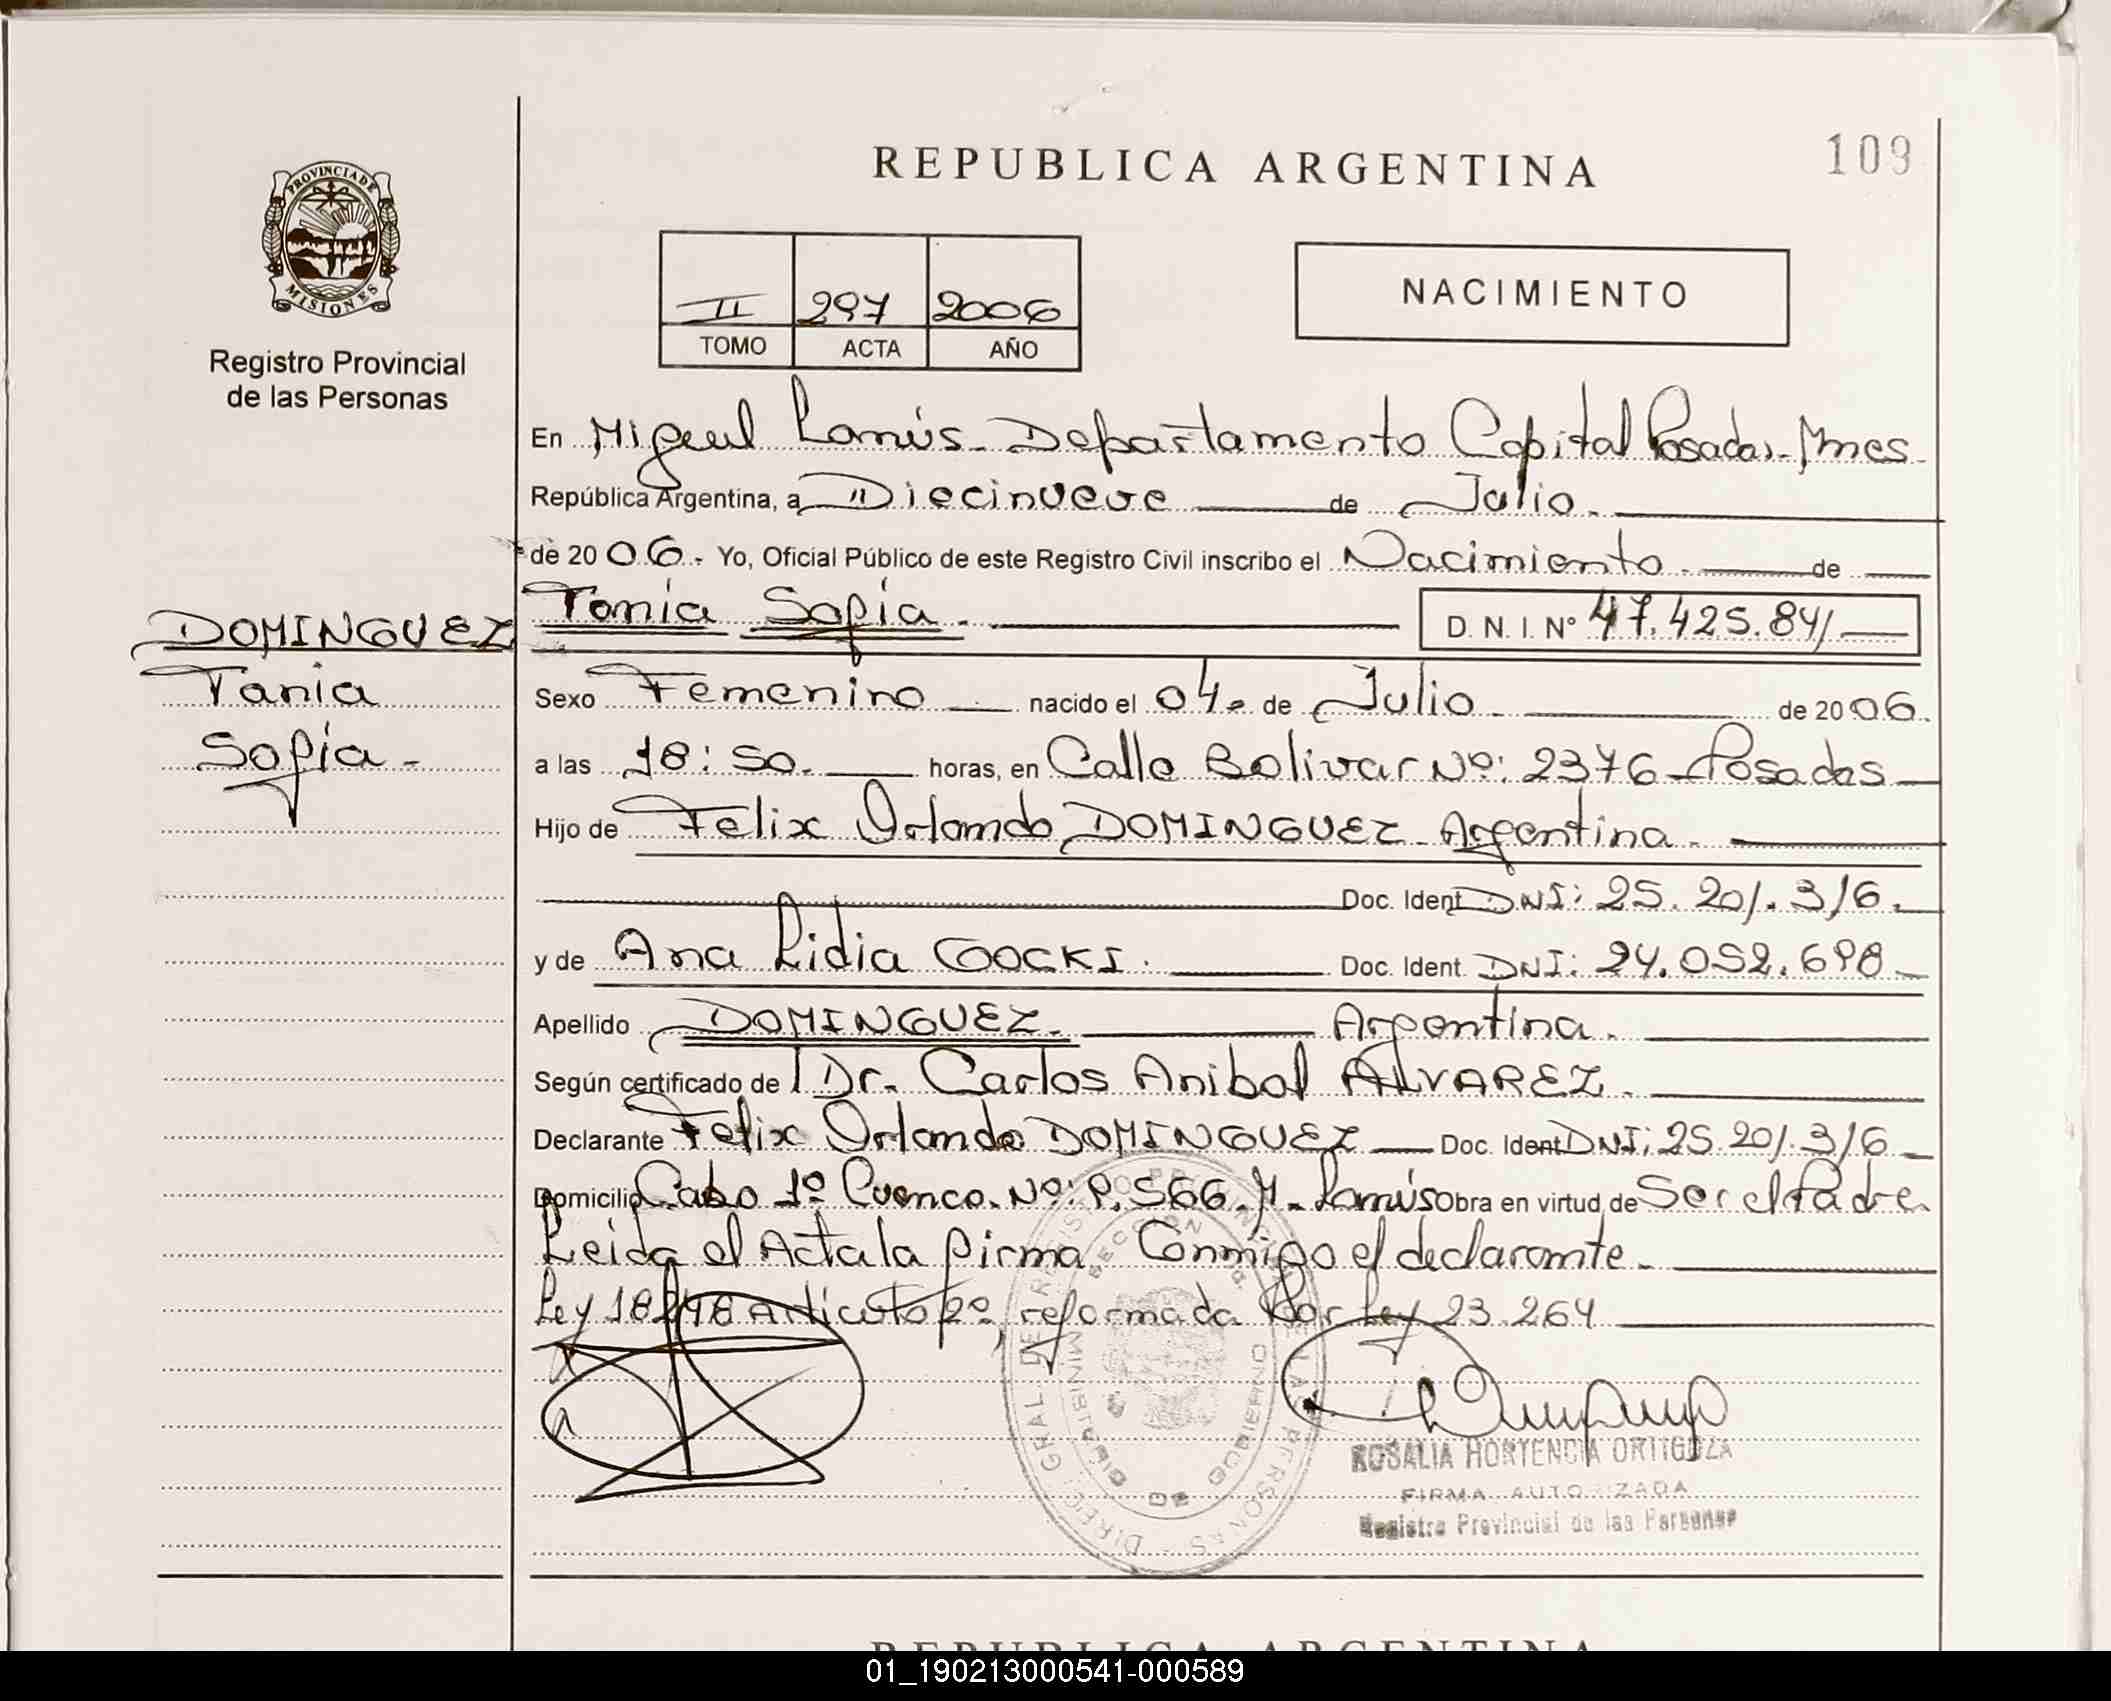 REPUBLICA ARGENTINA
109
PROVINCIA DE
MISIONES
Registro Provincial
de las Personas
II 297 2006
TOMO ACTA AÑO
NACIMIENTO
En Miguel Lanús - Departamento Capital Posadas - Mnes -
República Argentina, a Diecinueve de Julio.
de 20 06.- Yo, Oficial Público de este Registro Civil inscribo el Nacimiento. de
Tania Sofía. D. N. I. Nº 47.425.841
DOMINGUEZ
Tania
Sofía -
Sexo Femenino nacido el 04. de Julio de 20 06.
a las 18:50. horas, en Calle Bolivar Nº: 2376 - Posadas
Hijo de Felix Orlando DOMINGUEZ - Argentina.
Doc. Ident DNI: 25.201.316.
y de Ana Lidia GOCKI. Doc. Ident. DNI: 24.052.698
Apellido DOMINGUEZ. Argentina.
Según certificado de Dr. Carlos Anibal ALVAREZ.
Declarante Felix Orlando DOMINGUEZ Doc. Ident DNI: 25.201.316
Domicilio Cabo 1º Cuenca. Nº: P. 566. M. Lanús Obra en virtud de Ser el Padre
Leida el Acta la firma Conmigo el declarante.
Ley 18248 Articulo 2º, reformada Por Ley 23.264
ROSALIA HORTENCIA ORTIGOZA
FIRMA AUTORIZADA
Registro Provincial de las Personas
REPUBLICA ARGENTINA
01_190213000541-000589